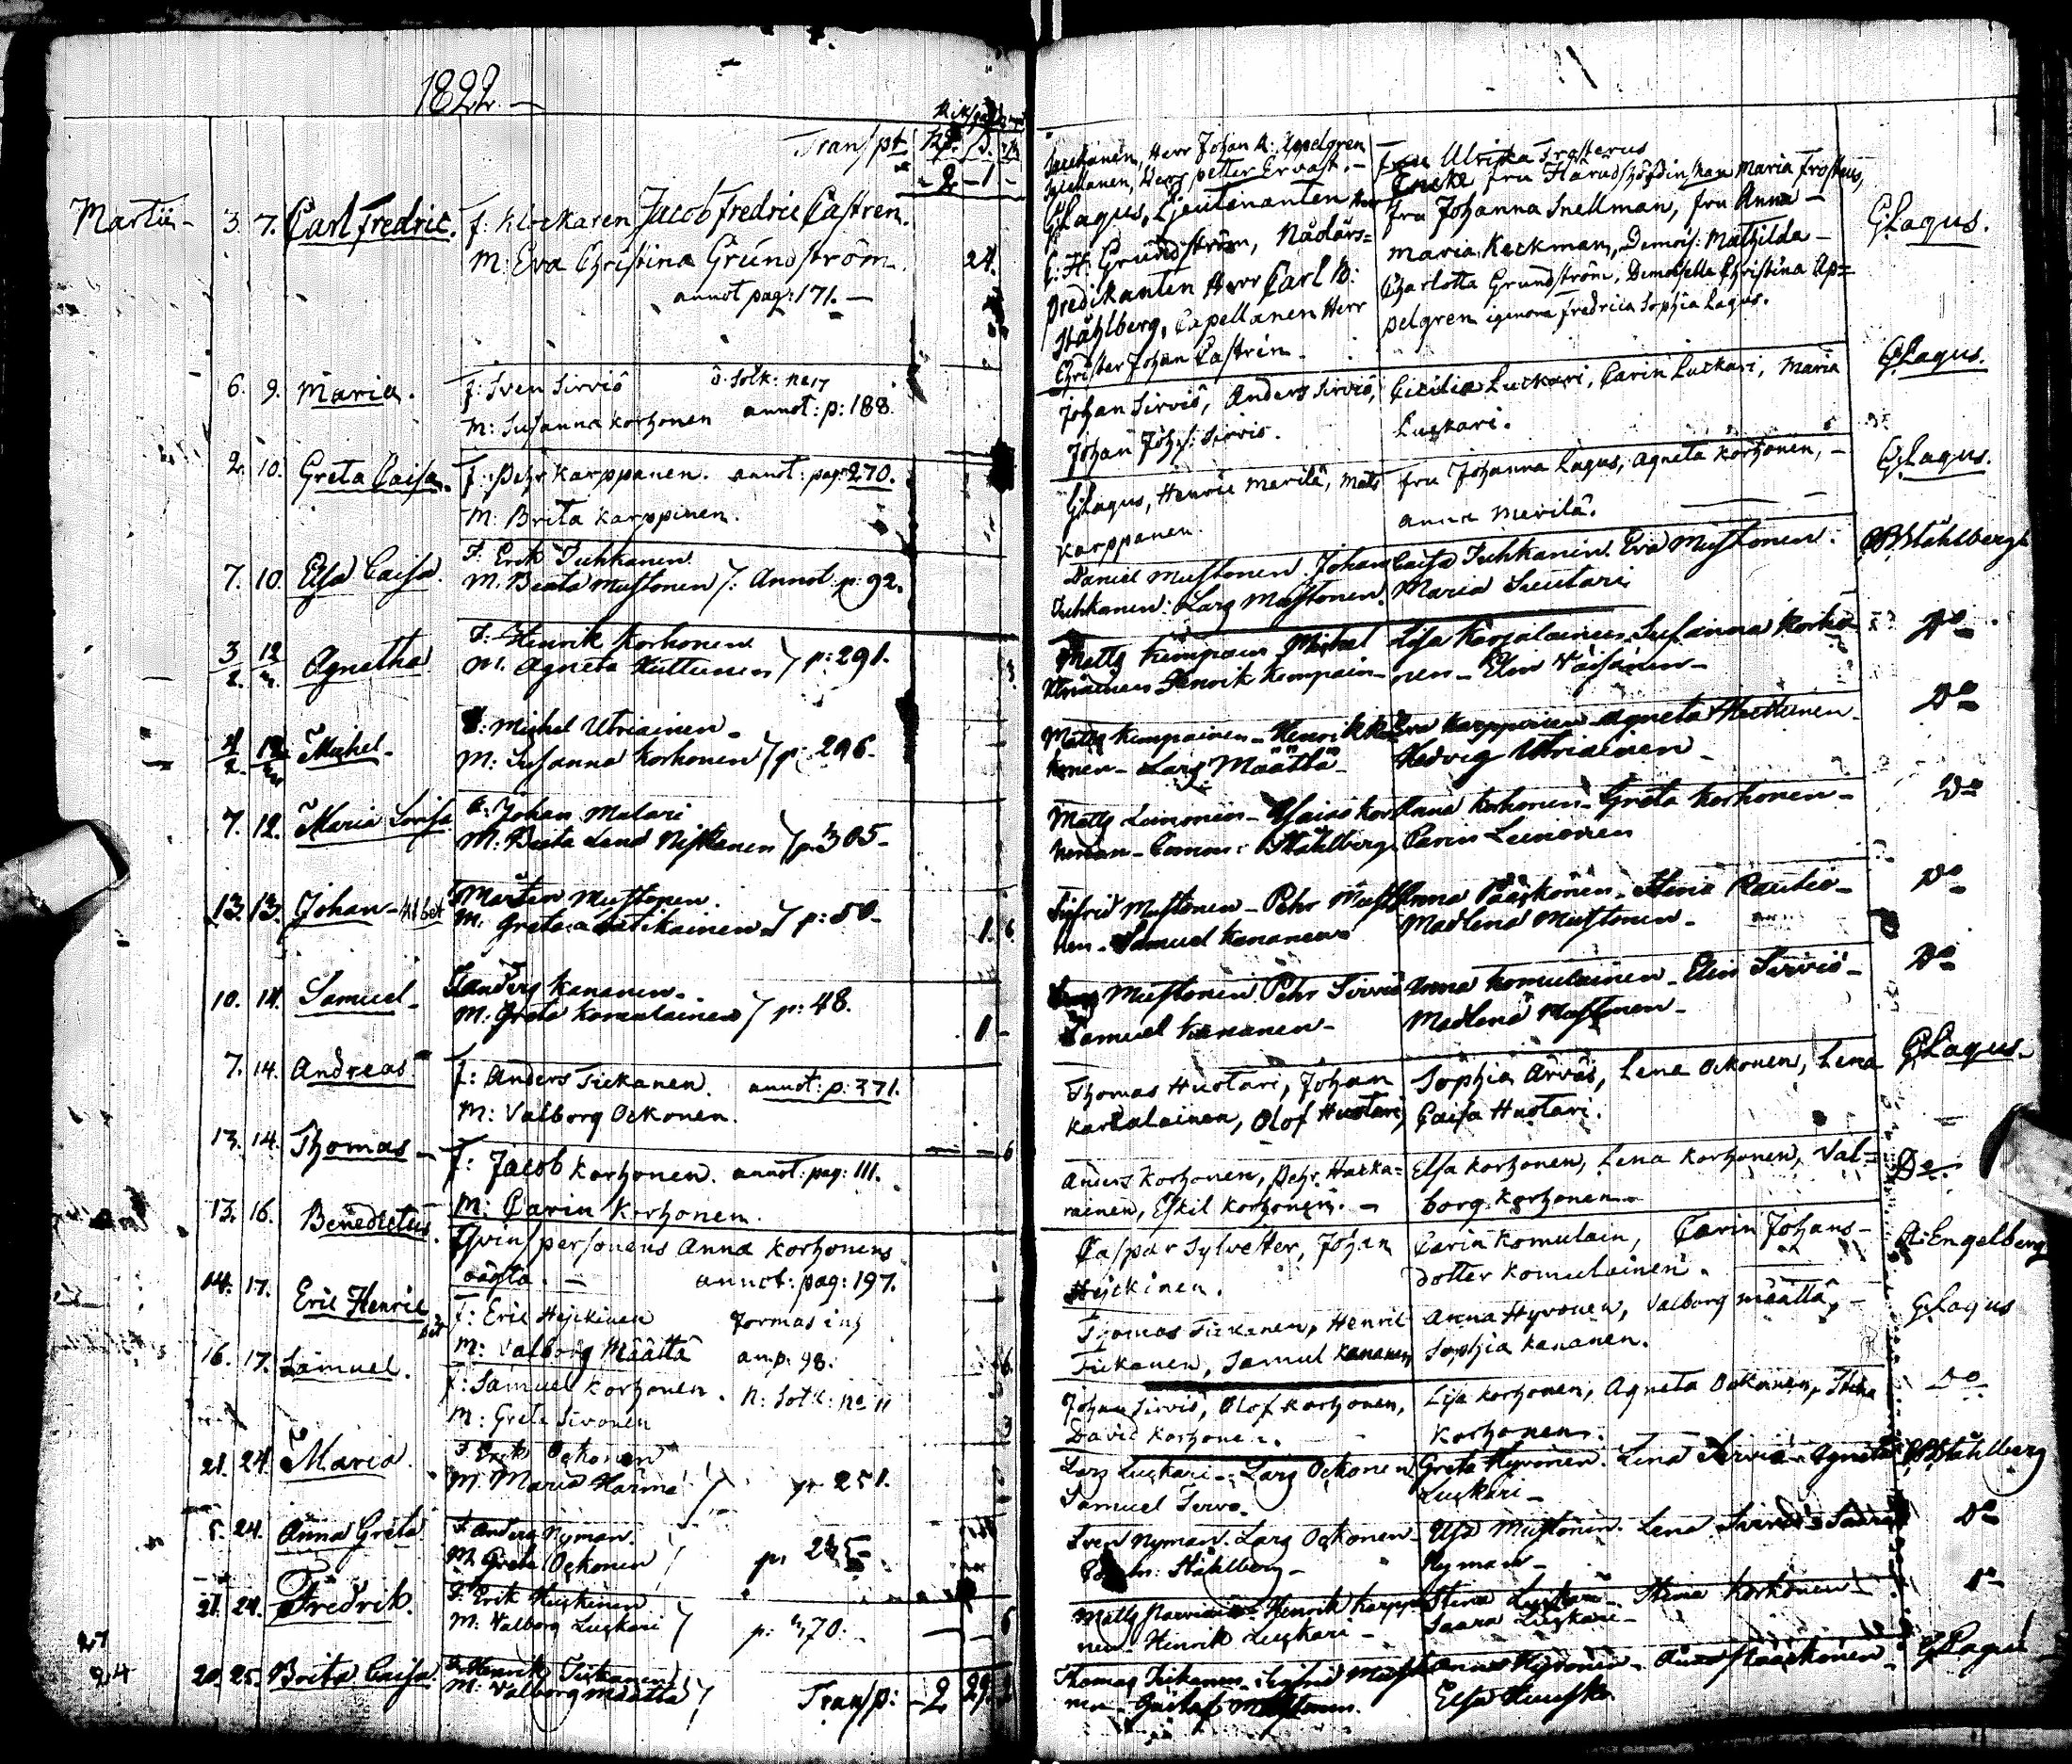 1822.
Trans/pt
2 - 1 -
Martii - 3. 7. Carl Fredric. F: Klockaren Jacob Fredric Castren.
M: Eva Christina Grundström. 24.
annot pag: 171. —
6. 9. Maria. F: Sven Sirviö
M: Susanna Korhonen annot: p: 188.
2. 10. Greta Caisa. F: Pehr Karppanen. annot: pag: 270.
M: Brita Karppinen.
7. 10. Elsa Caisa. F: Erik Juhkanen
M. Beata Mustonen /. Annot: p: 92.
3/2. 12 Agnetha F: Henrik Korhonen
M. Agneta Huttunen / p: 291.
4/2. 12 Michel - F: Michel Utriainen -
M: Susanna Korhonen / p: 296.
7. 12. Maria Lovisa F: Johan Malari
M: Beata Lena Niskanen / p: 305 -
13. 13. Johan - Mårten Mustonen.
M: Greta / p: 50 -
1. 6.
10. 14. Samuel - Anders Kananen -
M: Greta Komulainen / p: 48.
1 -
7. 14. Andreas F: Anders Tickanen. annot: p: 371.
M: Valborg Ockonen.
13. 14. Thomas - F: Jacob Korhonen. annot: pag: 111.
M: Carin Korhonen.
13. 16. Benedictus. Qvinspersonens Anna Korhonens
oägta. — annot: pag: 197.
14. 17. Eric Henric F: Eric Heickinen
M: Valborg Määttä an.p: 98.
16. 17. Samuel. F: Samuel Korhonen. N: Sotk: No 11
M: Greta Sivonen
21. 24. Maria. F: Erik Ockonen
M: Maria Härmä / p: 251.
5. 24. Anna Greta F: Anders Nyman.
M: Greta Ockonen
21. 24. Fredrik. F: Erik Heickinen
M: Valborg Luckari / p: 370.
20. 25. Brita Caisa F: Henrik Tickanen
M: Valborg Määttä / Transp: - 2 29.
Herr Johan A: Appelgren
Herr Petter Ervast. -
GLagus, Lieutenanten
C: H: Grundström, Nådårs=
predikanten Herr Carl B:
Ståhlberg, Capellanen Herr
Christer Johan Castrén.
Fru Ulrika Frosterus
Fru Häradshöfdinskan Maria Frosterus,
Fru Johanna Snellman, Fru Anna -
Maria Keckman, Demois: Mathilda -
Charlotta Grundström, Demoiselle Christina Ap=
pelgren Fredrica Sophia Lagus.
GLagus.
Johan Sirviö, Anders Sirviö,
Johan Johs: Sirviö.
Cicilia Luckari, Carin Luckari, Maria
Luckari.
GLagus.
GLagus, Henric Merilä, Mats
Karppanen
Fru Johanna Lagus, Agneta Korhonen, -
Anna Merilä.
GLagus.
Daniel Mustonen. Johan
Juhkanen: Lars Mustonen.
Caisa Juhkanen. Eva Mustonen.
Maria Suutari
CBStåhlberg
Matts Kempainen Michel
Utriainen Henrik Kempain-
Lisa Karjalainen Susanna Korho-
nen - Elin Väisänen -
Do
Matts Kempainen - Henrik
- Lars Määttä -
Eva Karppinen - Agneta Huttunen -
Hedvig Utriainen -
Do
Matts Leinonen -
Ståhlberg
Anna Korhonen - Greta Korhonen -
Carin Leinonen
Do
Sigfrid Mustonen - Pehr Musto-
nen - Samuel Kananen
Anna Pääskönen - Stina Rautio -
Madlena Mustonen -
Do
Mustonen Pehr Sirviö
Samuel Kananen -
Anna Komulainen - Elin Sirviö -
Madlena Mustonen -
Do
Thomas Huotari, Johan
Karjalainen, Olof Huotari,
Sophia Lena Ockonen, Lena
Caisa Huotari.
GLagus.
Anders Korhonen, Pehr Hacka=
rainen, Eskil Korhonen. -
Elsa Korhonen, Lena Korhonen, Val=
borg Korhonen
Do
Caspar Sylvester, Johan
Heickinen.
Carin Komulain, Carin Johans-
dotter Komulainen.
A: Engelberg
Thomas Tickanen, Henric
Tickanen, Samul Kananen
Anna Hyvönen, Valborg Määttä, -
Sophia Kananen.
GLagus
Johan Sirviö, Olof Korhonen,
David Korhonen.
Lisa Korhonen, Agneta Ockonen, Stina
Korhonen.
Do
Lars Luckari - Lars Ockonen
Samuel Servo
Greta Hyvönen. Lena Servio - Agneta
Luckari -
CBStåhlberg
Sven Nyman. Lars Ockonen -
Ståhlberg -
Elsa Mustonen. Lena
Nyman -
Do
Matts Henrik Karppi-
nen - Henrik Luckari -
Stina Luckari - Stina Korhonen
Saara Luckari -
Thomas Tickanen - Sigfrid Musto-
nen - Gustaf Mustonen.
Anna Hyvönen - Anna Pääskönen -
Elsa
GLagus
27
24